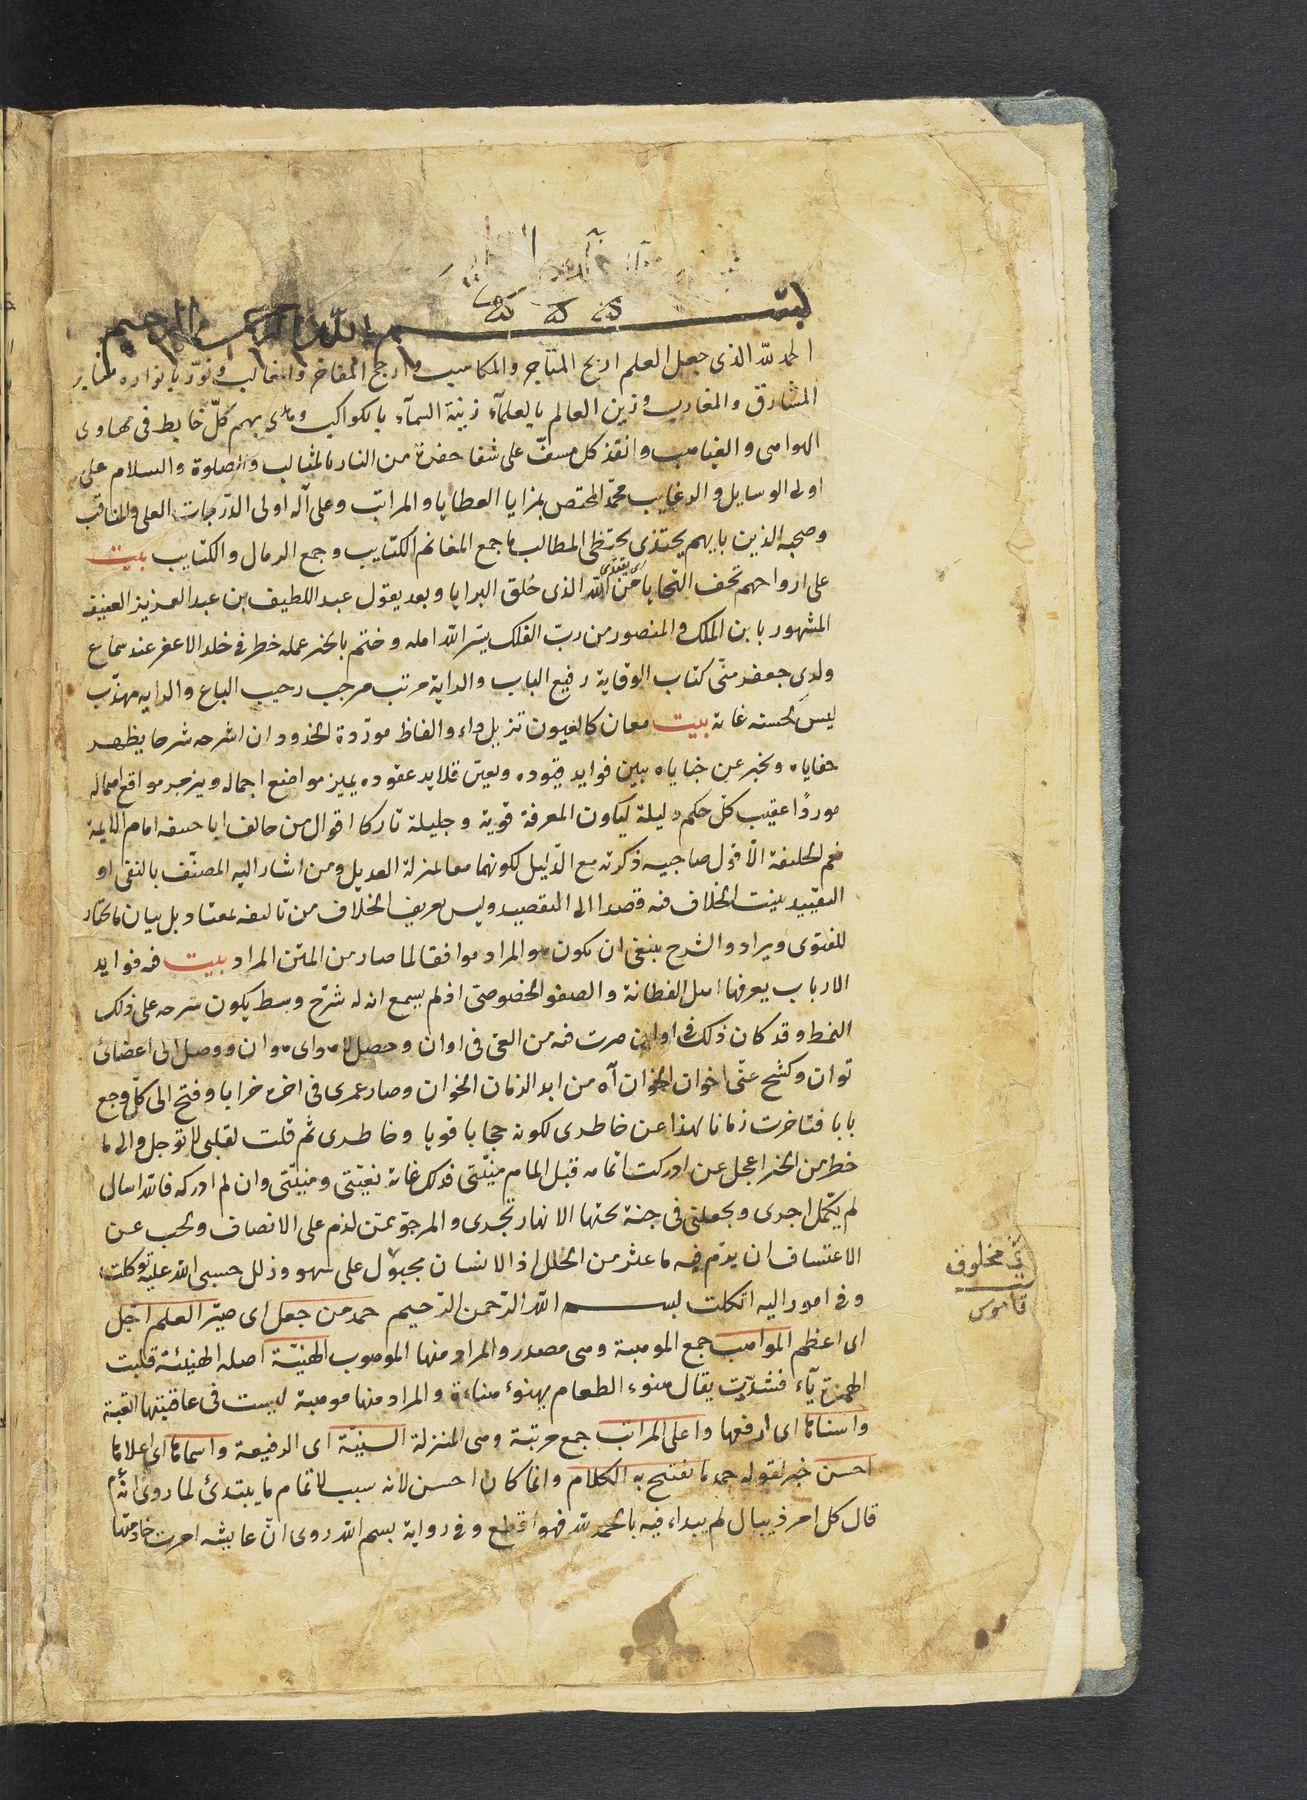 بسم الله الرحمن الرحيم
الحمد لله الذى جعل العلم اربح المتاجر والمكاسب وارجح المفاخر ونور بانواره
المشارق والمغارب وزين العالم بالعلمآء زينة السمآء بالكواكب وهدى بهم كلّ خابط فى مهاوى
الهواهى والغياهب وانقذ كل مسفّ على شفا حفرة من النار بالمثالب والصلوة والسلام على
اولى الوسايل والرغايب محمّد المختص بمزايا العطايا والمراتب وعلى آله اولى الدّرجات العلى والمناقب
وصحبه الذين بايهم يحتذى يحتظى المطالب ما جمع المغانم الكتايب وجمع الرمال والكتايب بيت
على ارواحهم تحف التحايا من الله الذى خلق البرايا وبعد يقول عبد اللطيف بن عبد العزيز الضعيف
المشهور بابن الملك والمنصور من ربّ الفلك يسّر الله امله وختم بالخير عمله خطر فى خلد الاعفر عند سماع
ولدى جعفر منّى كتاب الوقاية رفيع الباب والراية مرتب مرجب رحيب الباع والدايه مهذّب
ليس لحسنه غاية بيت معان كالعيون تزيل داء والفاظ مورّدة الخدود ان اشرحه شرحا يظهر
خفاياه ويخبر عن خباياه يبين فوايد قيوده ويعيّن قلايد عقوده يميز مواضع اجماله ويزجر مواقع اهماله
موردًا عقيب كل حكم دليله ليكون المعرفة قوية وجليلة تاركا اقوال من خالف ابا حنيفه امام الايمة
نعم الخليفة الّا قول صاحبيه ذكرته مع الدّليل لكونهما معا بمنزلة العديل ومن اشار اليه المصنّف بالنفى او
التقييد بينت الخلاف فيه قصدا الى التقصيد وليس تعريف الخلاف من تاليفه بمعتاد بل بيان ما المختار
للفتوى ويراد والشرح ينبغى ان يكون هو المراد موافقا لما صار من المتن المراد بيت فيه فوايد
الارباب يعرفها اهل الفطانة والصفو الخصوصى اذ لم يسمع انه له شرح وسط يكون شرحه على ذلك
النمط وقد كان ذلك فى اوان صرت فيه من العى فى اوان وحصل لاهواى هوان ووصل الى اعضائى
توان وكشح عنّى اخوان الخوان آه من ابد الزمان الخوان وصار عمرى فى اخره خرابا وفتح الى كل وجع
بابا فتاخرت زمانا لهذا عن خاطرى لكونه حجابا قويا وخاطرى ثم قلت لقلبى لا توجل والى ما
خطر من الخير اعجل عن ادركت اتمامه قبل المام منيّتى فذلك غاية نعيّتى ومنيّتى وان لم ادركه فالله اسال
لم يكمّل اجرى ويجعلنى فى جنة تحتها الانهار تجرى والمرجوّ عمّن لزم على الانصاف ونحب عن
الاعتساف ان يرمّ فيه ما عثر من الخلل اذ الانسان مجبول على سهو وزلل حسبى الله عليه توكلت
وفى امور اليه اتكلت بسم الله الرّحمن الرّحيم حمد من جعل اى صيّر العلم اجل
اى اعظم المواهب جمع الموهبة وهى مصدر والمراد منها الموهوب الهنيّة اصله الهنيئة قلبت
الهمزة يآء فشدّدت يقال هنوء الطعام يهنوء هناءة والمراد منها موهبة ليست فى عاقبتها التعبة
واسناها اى ارفعها واعلى المراتب جمع مرتبة وهى المنزلة السنيّة اى الرفيعة واسماها اى اعلاها
احسن خبر لقوله حمد ما يفتتح به الكلام وانما كان احسن لانه سبب لاتمام ما يبتدئ لما روى انّه عم
قال كل امر ذى بال لم يبداء فيه بالحمد لله فهو اقطع وفى رواية بسم الله روى انّ عايشه امرت خادمتها
اى مخلوف
قاموس